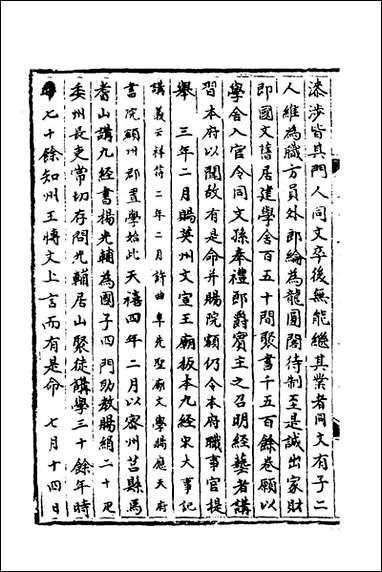 滺涉皆其門人同文卒後無能繼其業者同文有子二
人維為職方員外郎綸為龍圖閣待制至是誠出家財
即國文舊居建學舍百五十間聚書千五百餘卷願以
學舍入官令同文孫奉禮郎爵賓主之召明經藝者講
習本府以聞故有是命并賜院額仍令本府職事官提
舉　三年二月賜英州文宣王廟板本九經宋大事記
講義云祥符二年二月許曲阜先聖廟立學賜應天府
書院額州郡置學始此天禧四年二月以密州莒縣馬
耆山講九經書楊光輔為國子四門助教賜絹二十疋
委州長吏常切存問光輔居山聚徒講學三十餘年時
年七十餘知州王博文上言而有是命　七月十四日